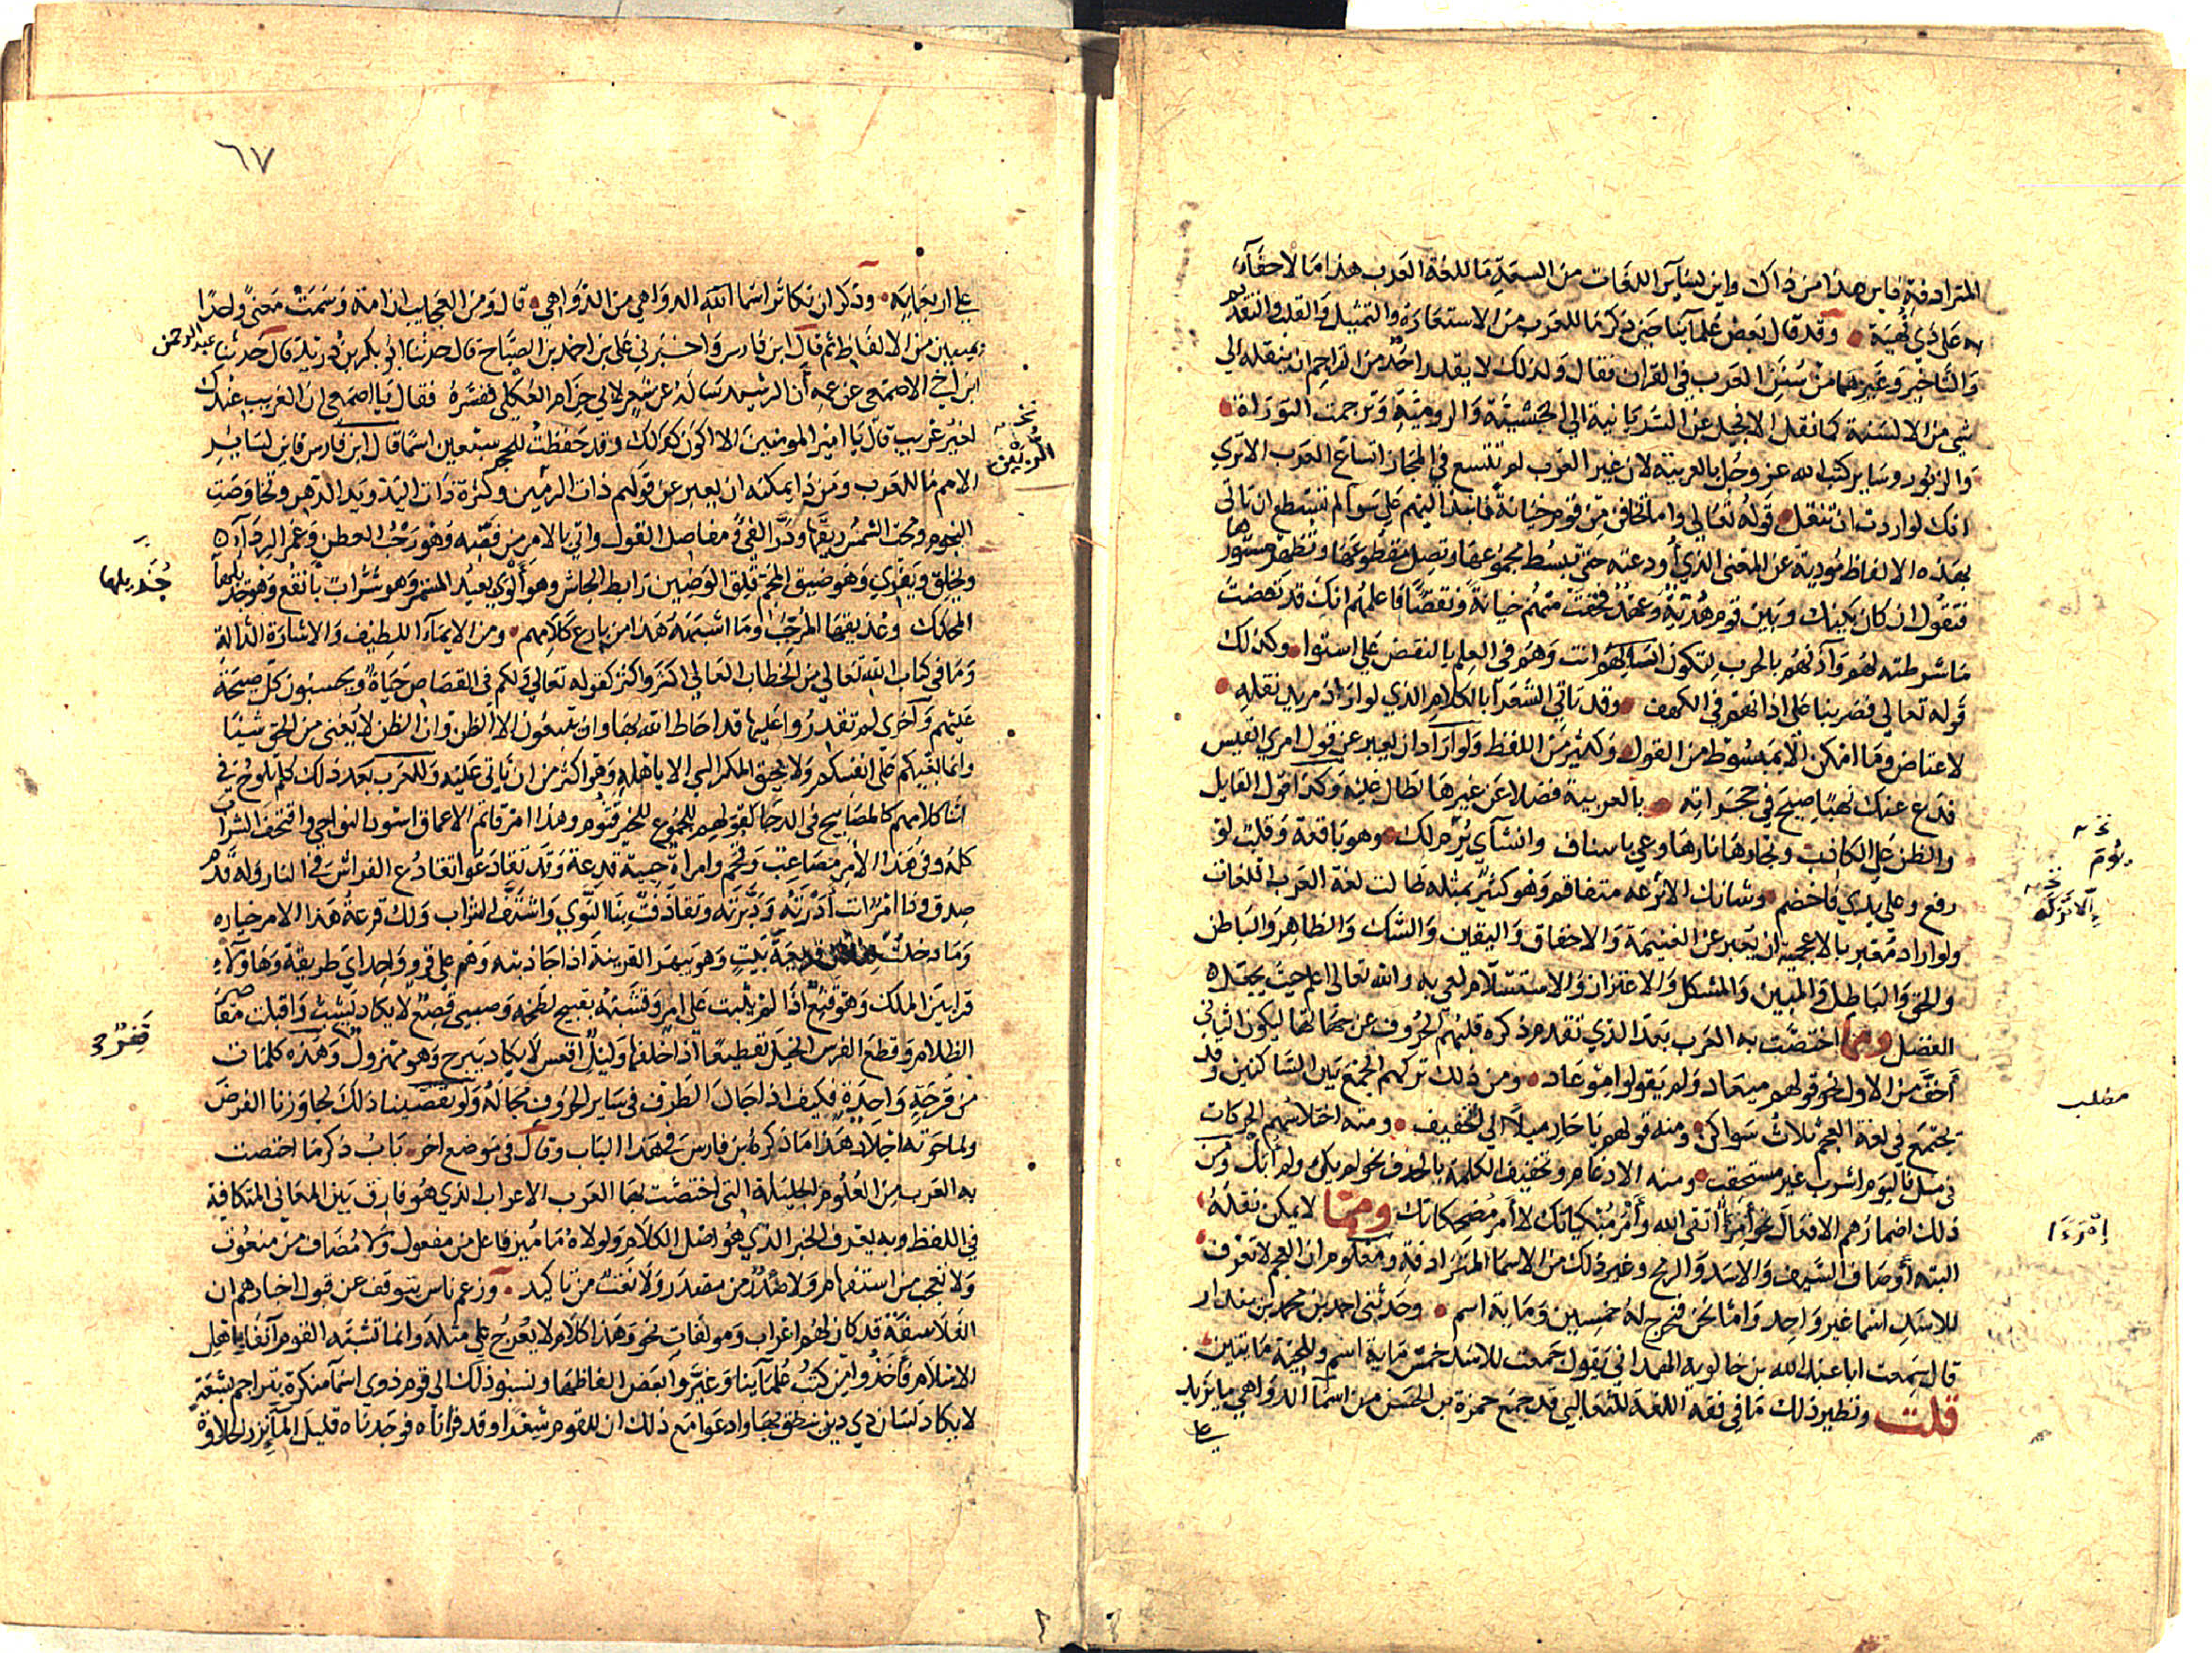 المترادفة فاين هذا من ذاك واين لسآير اللغات من السعة ما للغة العرب هذا ما لا خفآء
به على ذي نهية وقد قال بعض علمآينا حين ذكر ما للعرب من الاستعارة والتمثيل والقلب والتقديم
والتاخير وغيرها من سنن العرب في القران فقال ولذلك لا يقدر احد من التراجم ان ينقله الي
شي من الالسنة كما نقل الانجيل عن السريانية الي الحبشية والرومية وترجمت التوراة
والزبور وساير كتب الله عز وجل بالعربية لان غير العرب لم تتسع في المجاز اتساع العرب الا تري
انك لو اردت ان تنقل قوله تعالي واما تخافن من قوم خيانة فانبذ اليهم علي سوآ لم تستطع ان تاتي
بهذه الالفاظ مودية عن المعني الذي أودعته حتي تبسط مجموعها وتصل مقطوعها وتظهر مستورها
فتقول ان كان بينك وبين قوم هدنة وعهد فخفت منهم خيانة ونقضا فاعلمهم انك قد نقضت
ما شرطته لهم وآذنهم بالحرب لتكون انت وهم في العلم بالنقض علي استوا وكذلك
قوله تعالي فضربنا على اذانهم في الكهف وقد تاتي الشعرآ بالكلام الذي لو اراد مريد نقله
لاعتاص وما امكن الا بمبسوط من القول وكثير من اللفظ ولو اراد ان يعبر عن قول امري القيس
فدع عنك نهبا صيح في حجراته بالعربية فضلا عن غيرها لطال عليه وكذا قول القايل
والظن على الكاذب ونجارها نارها وعي باسناف وانشآي يرم لك وهو باقعة وقلب لو
رفع وعلي يدي فاخضم وشانك الا تركه متفاقم وهو كثير بمثله طالت لغة العرب اللغات
ولو اراد معبر بالاعجمية ان يعبر عن الغنيمة والاخفاق واليقين والشك والظاهر والباطن
والحق والباطل والمبين والمشكل والاعتزاز والاستسلام لعي به والله تعالي اعلم حيث يجعل
الفضل ومما اختصت به العرب بعد الذي تقدم ذكره قلبهم الحروف عن جهاتها ليكون الثاني
أخف من الاول نحو قولهم ميعاد ولم يقولوا موعاد ومن ذلك تركهم الجمع بين الساكنين وقد
يجتمع في لغة العجم ثلاث سواكن ومنه قولهم يا حار ميلا الي التخفيف ومنه اختلاسهم الحركات
في مثل فاليوم اشرب غير مستحقب ومنه الادغام وتخفيف الكلمة بالحذف نحو لم يك ولم أبل ومن
ذلك اضمارهم الافعال نحو امرأ اتقي الله وأمر مبكياتك لا أمر مضحكاتك ومما لا يمكن نقله
البته أوصاف السيف والاسد والرمح وغير ذلك من الاسما المترادفة ومعلوم ان العجم لا تعرف
للاسد اسما غير واحد واما نحن فنخرج له خمسين وماية اسم وحدثني احمد بن محمد بن بندار
قال سمعت ابا عبد الله بن خالويه الهمداني يقول جمعت للاسد خمس ماية اسم وللحية مايتين
قلت ونظير ذلك ما في فقه اللغة للثعالبي قد جمع حمزة بن الحسن من اسمآ الدواهي ما يزيد
علي
يؤم
مطلب
إمرءا
٦٧
علي اربعماية وذكر ان تكاثر اسمآ الدواهي من الدواهي قال ومن العجايب ان امة وسمت معني واحدا
بميين من الالفاظ ثم قال ابن فارس واخبرني علي بن احمد بن الصباح قال حدثنا ابو بكر بن دريد قال حدثنا عبد الرحمن
ابن اخي الاصمعي عن عمه أن الرشيد ساله عن شعر لابي حزام العكلي ففسره فقال يا اصمعي ان الغريب عندك
لغير غريب قال يا امير المومنين الا اكون كذلك وقد حفظت للحجر سبعين اسما قال ابن فارس فاين لساير
الامم ما للعرب ومن ذا يمكنه ان يعبر عن قولهم ذات الزمين وكثرة ذات اليد ويد الدهر وتخاوصت
النجوم ومجت الشمس ريقها ودرا الفي ومفاصل القول واتي بالامر من فصه وهو رحب العطن وغمر الردآ
ويخلق ويفري وهو ضيق المجم قلق الوضين رابط الجاش وهو ألوي بعيد المستمر وهو شراب بأنقع وهو جذيلها
المحكك وعذيقها المرجب وما اشبه هذا من بارع كلامهم ومن الايمآء اللطيف والاشارة الدالة
وما في كتاب الله تعالي من الخطاب العالي اكثر واكثر كقوله تعالي ولكم في القصاص حياة ويحسبون كل صيحة
عليهم وآخري لم تقدروا عليها قد احاط الله بها وان يتبعون الا الظن وان الظن لا يغني من الحق شيئا
وانما بغيكم على انفسكم ولا يحيق المكر السي الا باهله وهو اكثر من ان ناتي عليه وللعرب بعد ذلك كلم تلوح في
اثنا كلامهم كالمصابيح في الدجا كقولهم للجموع للخير قثوم وهذا امر قاتم الاعماق اسود النواحي واقتحف الشراب
كله وفي هذا الامر مصاعب وقحم وامراة حيية قدعة وقد تقادعوا تقادع الفراش في النار وله قدم
صدق وذا امر انت أدرته ودبرته وتقاذفت بنا النوي واشتف الشراب ولك قرعة هذا الامر خياره
وما دخلت لفلان قريعة بيت وهو يبهر القرينة اذا جاذبته وهم علي قرو واحد اي طريقة وهاولآء
قرابين الملك وهو قشع اذا لم يثبت على امر وقشبه بقبيح لطخه وصبي قصع لا يكاد يشب واقبلت مقاصر
الظلام وقطع الفرس الخيل تقطيعا اذا خلفها وليل اقعس لا يكاد يبرح وهو منزول وهذه كلمات
من قرحة واحدة فكيف اذا جال الطرف في ساير الحروف مجاله ولو تقصينا ذلك لجاوزنا الغرض
ولما حوته اجلاد هذا ما ذكره ابن فارس في هذا الباب وقال في موضع اخر باب ذكر ما اختصت
به العرب من العلوم الجليلة التي اختصت بها العرب الاعراب الذي هو فارق بين المعاني المتكافية
في اللفظ وبه يعرف الخبر الذي هو اصل الكلام ولولاه ما ميز فاعل من مفعول ولا مضاف من منعوت
ولا تعجب من استفهام ولا صدر من مصدر ولا نعت من تاكيد وزعم ناس يتوقف عن قبول اخبارهم ان
الفلاسفة قد كان لهم اعراب ومولفات نحو وهذا كلام لا يعرج علي مثله وانما تشبه القوم آنفا باهل
الاسلام فاخذوا من كتب علمآينا وغيروا بعض الفاظها ونسبوا ذلك الي قوم ذوي اسمآ منكرة بتراجم بشعة
لا يكاد لسان ذي دين ينطق بها وادعوا مع ذلك ان للقوم شعرا وقد قراناه فوجدناه قليل المآء نزر الحلاوة
جذيلها